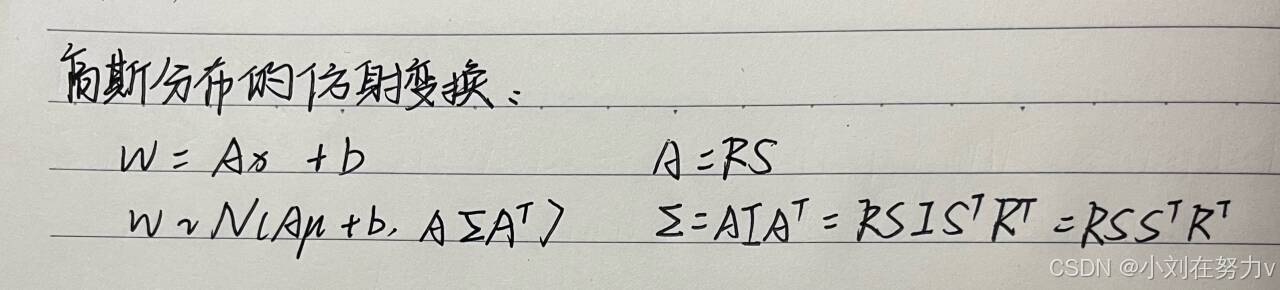 高斯分布的仿射变换：
W = Ax + b
A = RS
W ~ N(Aμ + b, AΣAᵀ)
Σ = AIAᵀ = RSISᵀRᵀ = RSSᵀRᵀ
CSDN @小刘在努力v